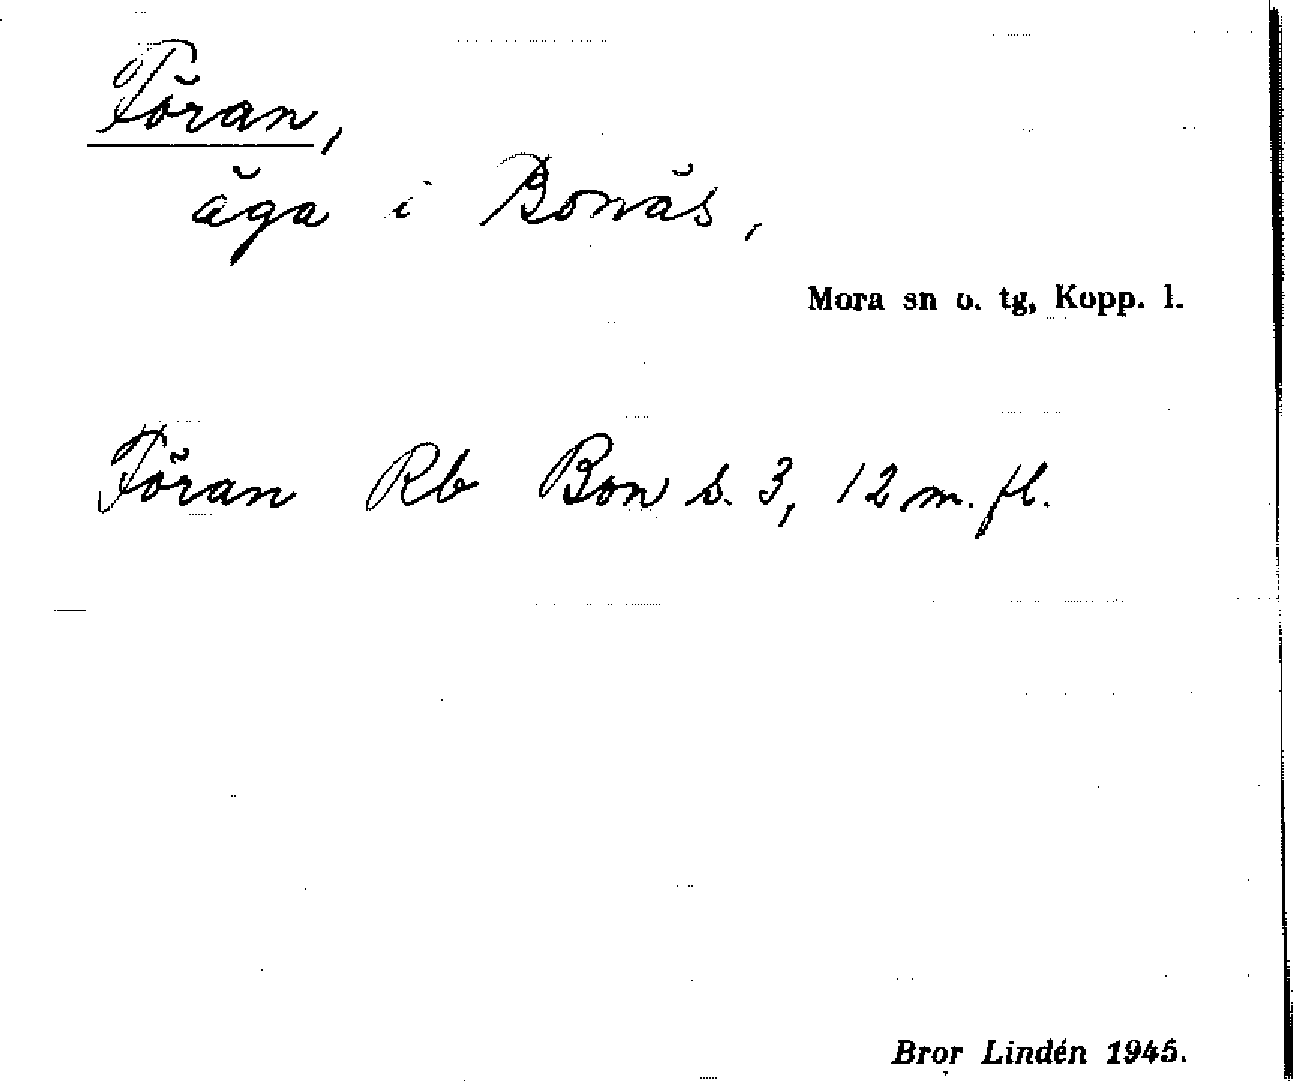 Föran,
äga i Bonäs,
Mora sn o. tg, Kopp. l.
Föran Rb Bon s. 3, 12 m. fl.
Bror Lindén 1945.